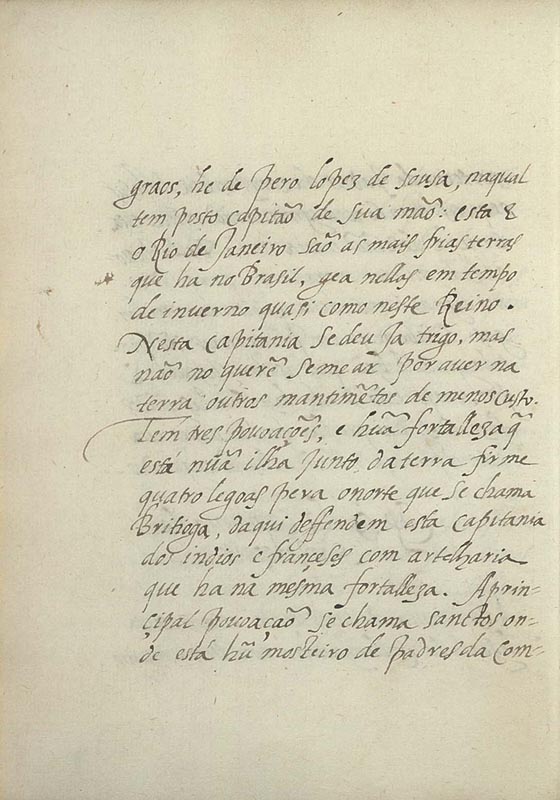 graos, he de pero lopez de sousa, naqual
tem posto capitaõ de sua maõ: esta &
o Rio de Janeiro saõ as mais frias terras
que há no Brasil, gea nellas em tempo
de inverno quasi como neste Reino.
Nesta capitania se deu ja trigo, mas
naõ no querẽ semear por aver na
terra outros mantimẽtos de menos custo.
Tem tres povoaçoẽs, e huã fortalleza q̃
está nuã ilha junto da terra firme
quatro legoas pera o norte que se chama
Britioga, daqui deffendem esta capitania
dos indios e françeses com artelharia
que ha na mesma fortalleza. A prin-
çipal povoaçaõ se chama sanctos on-
de está hũ mosteiro de padres da Com-